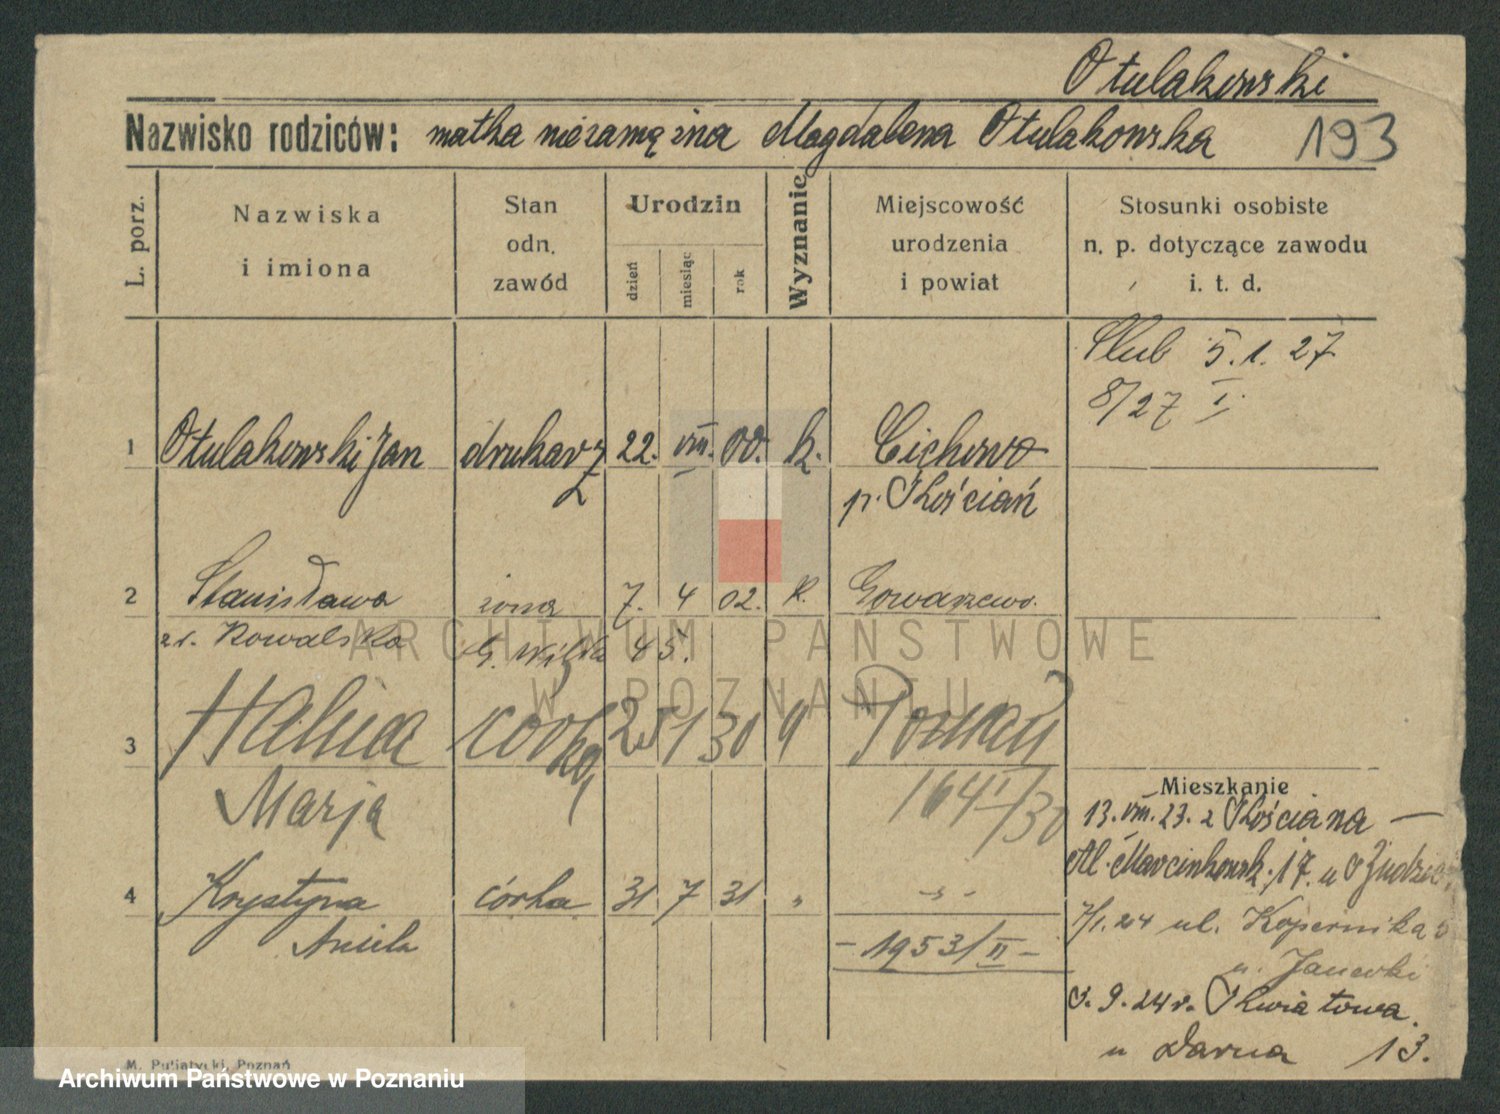 Otulakowski
Nazwisko rodziców: matka niezamężna Magdalena Otulakowska 193
L. porz.
Nazwiska
i imiona
Stan
odn.
zawód
Urodzin
dzień
miesiąc
rok
Wyznanie
Miejscowość
urodzenia
i powiat
Stosunki osobiste
n. p. dotyczące zawodu
i. t. d.
Ślub 5.1.27
8/27 I.
1 Otulakowski Jan drukarz 22. VIII. 00. k. Cichowo
p. Kościan
2 Stanisława żona 7. 4 02. k. Gowarzewo.
zd. Kowalska G. 45.
3 Halina córka 25 1 30 Poznań
Marja 164 I/30
4 Krystyna córka 31 7 31 " - " -
Aniela - 1953/II -
Mieszkanie
13. VIII. 23. z Kościana —
Al. Marcinkowsk. 17. u
7/1. 24 ul. Kopernika 5
u. Janecki
9. 24 r. Kwiatowa.
u 13.
M. Putiatycki, Poznań
ARCHIWUM PAŃSTWOWE
W POZNANIU
Archiwum Państwowe w Poznaniu